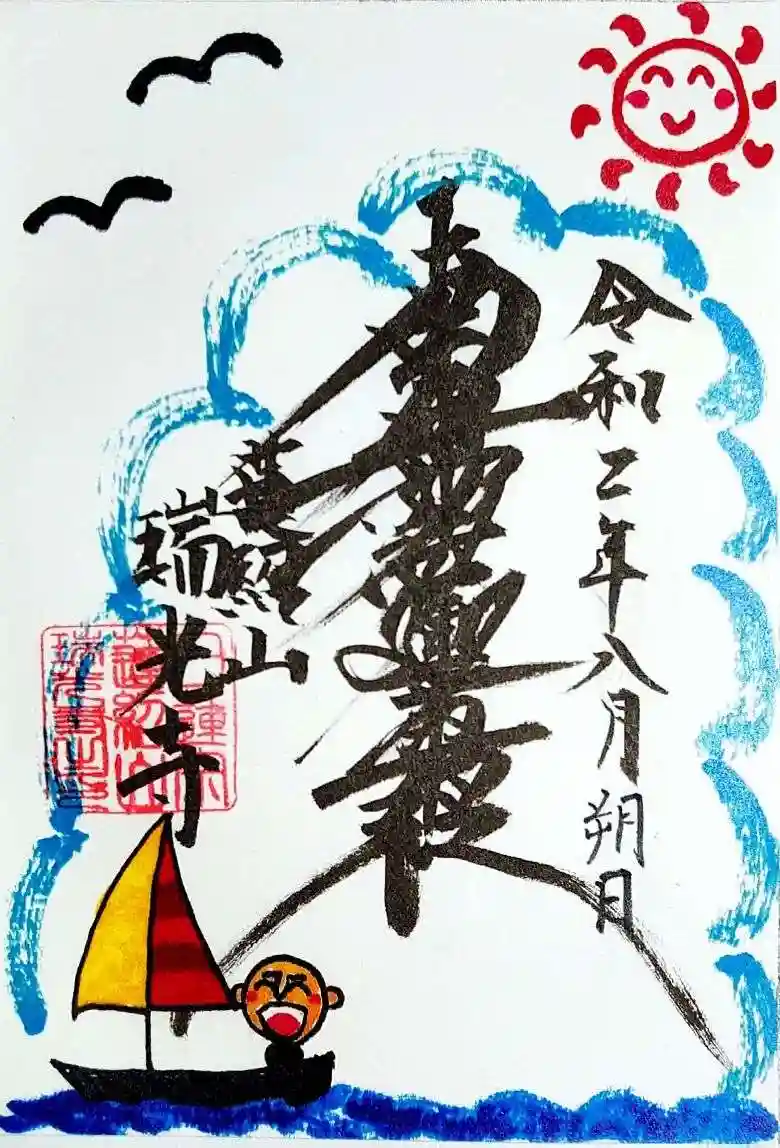 令和二年八月朔日
南無妙法蓮華経
普照山
瑞光寺